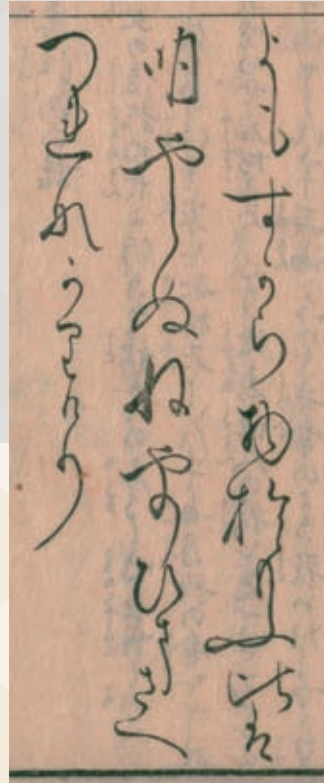 よもすから物おもふ比は
明やらぬねやのひまさへ
つれなかりけり